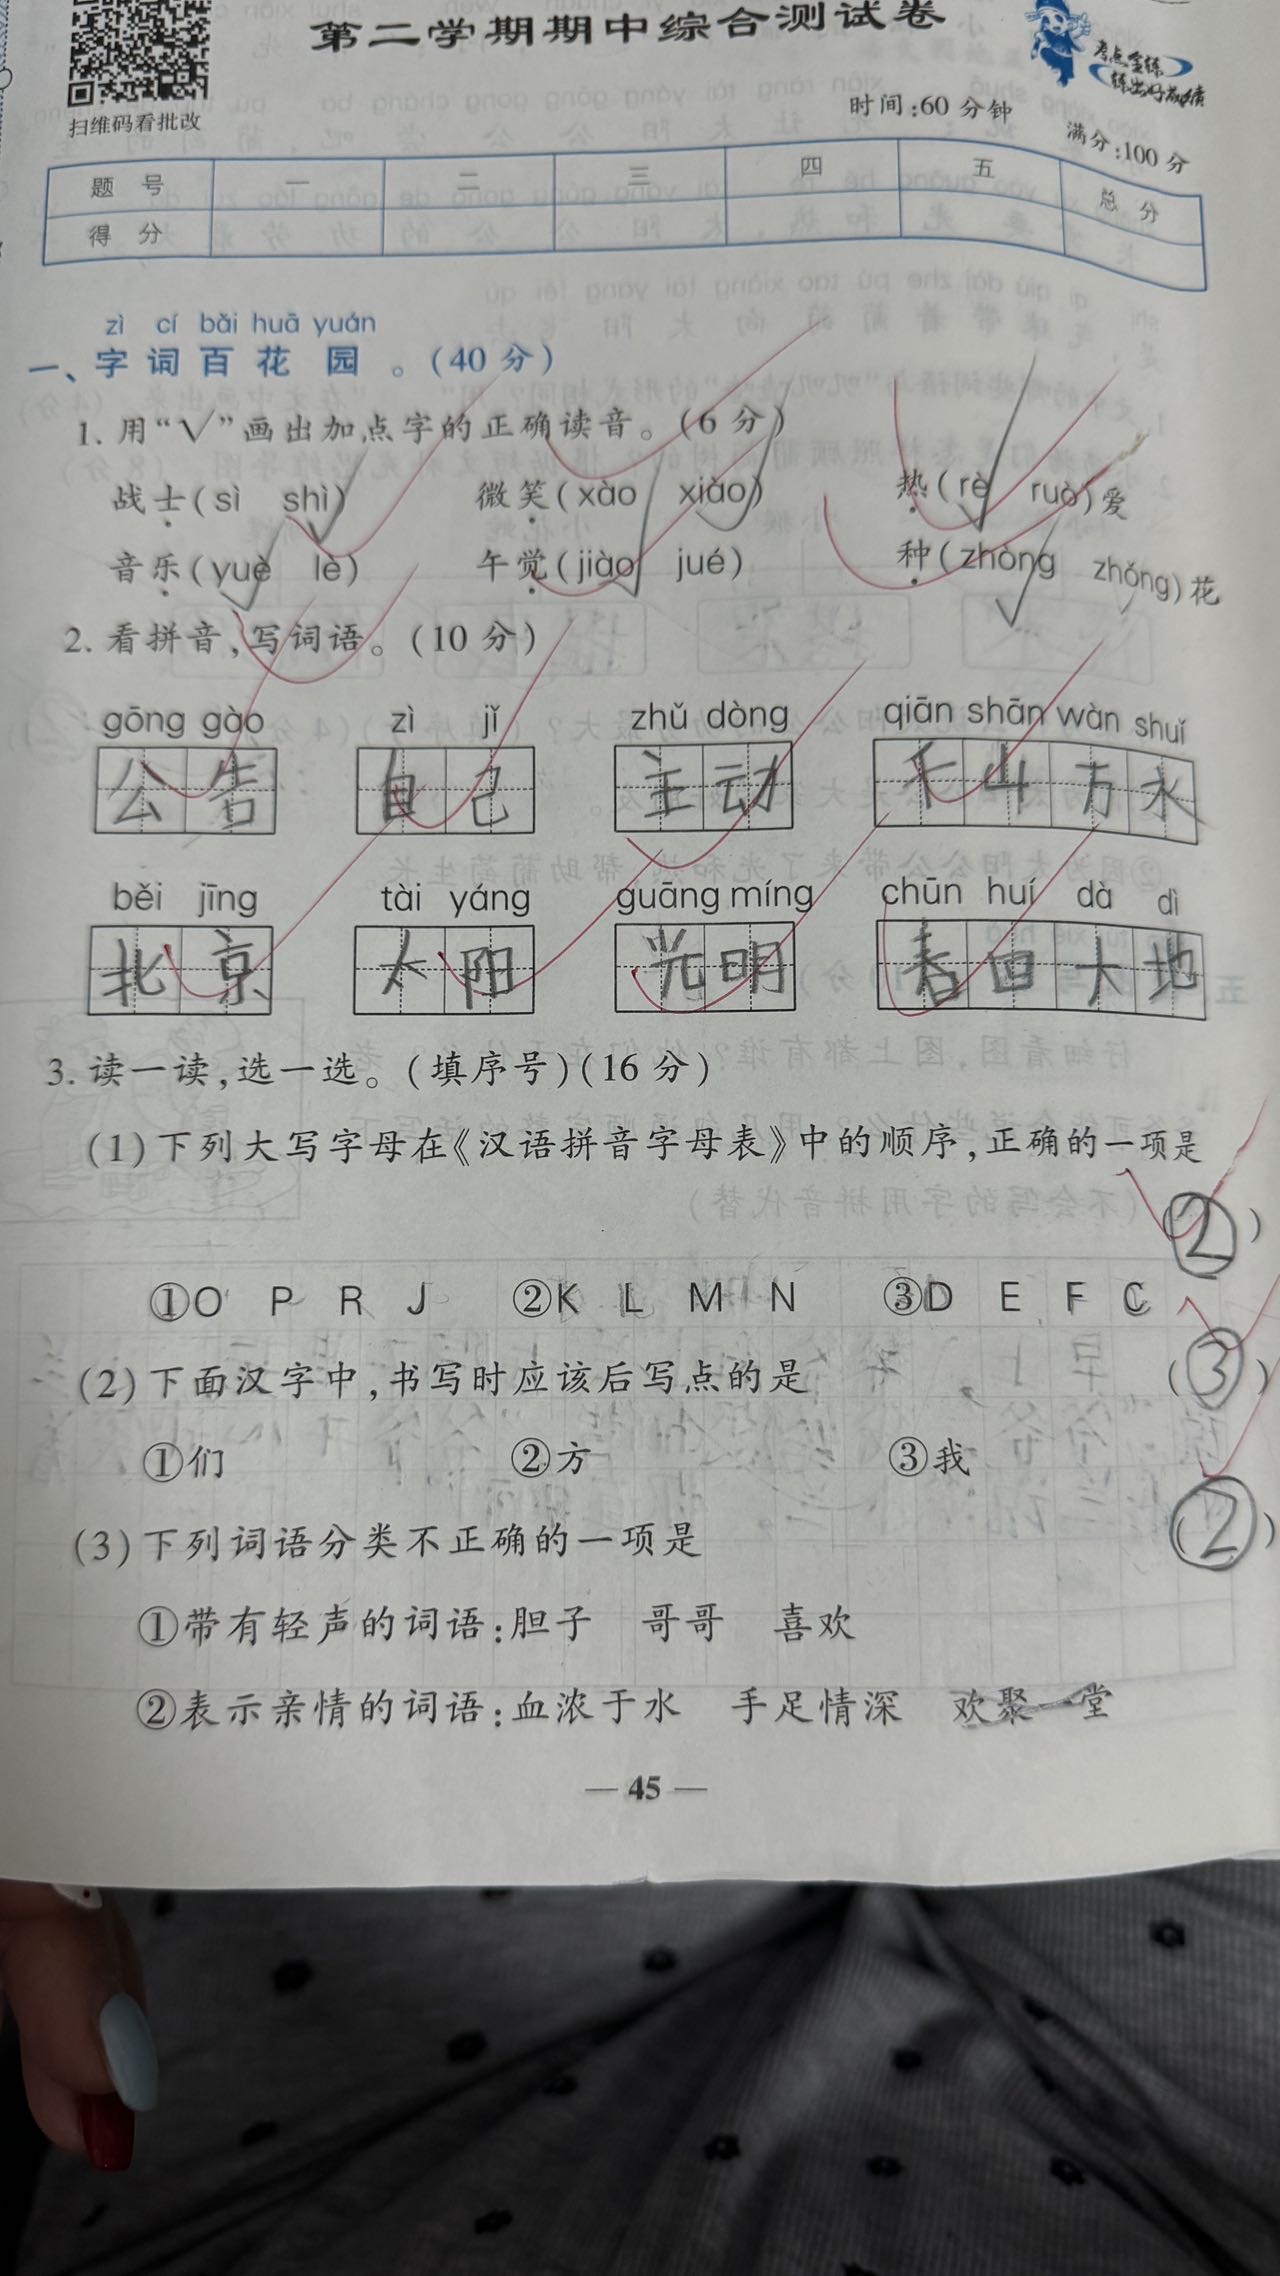 第二学期期中综合测试卷
考点全练
练出好成绩
扫维码看批改
时间:60分钟 满分:100分
题号 一 二 三 四 五 总分
得分
zì cí bǎi huā yuán
一、字词百花园。(40分)
1. 用“√”画出加点字的正确读音。(6分)
战士(sì shì) 微笑(xào xiào) 热(rè ruò)爱
音乐(yuè lè) 午觉(jiào jué) 种(zhòng zhǒng)花
2. 看拼音,写词语。(10分)
gōng gào zì jǐ zhǔ dòng qiān shān wàn shuǐ
公告 自己 主动 千山万水
běi jīng tài yáng guāng míng chūn huí dà dì
北京 太阳 光明 春回大地
3. 读一读,选一选。(填序号)(16分)
(1)下列大写字母在《汉语拼音字母表》中的顺序,正确的一项是
(②)
①O P R J ②K L M N ③D E F C
(2)下面汉字中,书写时应该后写点的是 (③)
①们 ②方 ③我
(3)下列词语分类不正确的一项是 (②)
①带有轻声的词语:胆子 哥哥 喜欢
②表示亲情的词语:血浓于水 手足情深 欢聚一堂
— 45 —